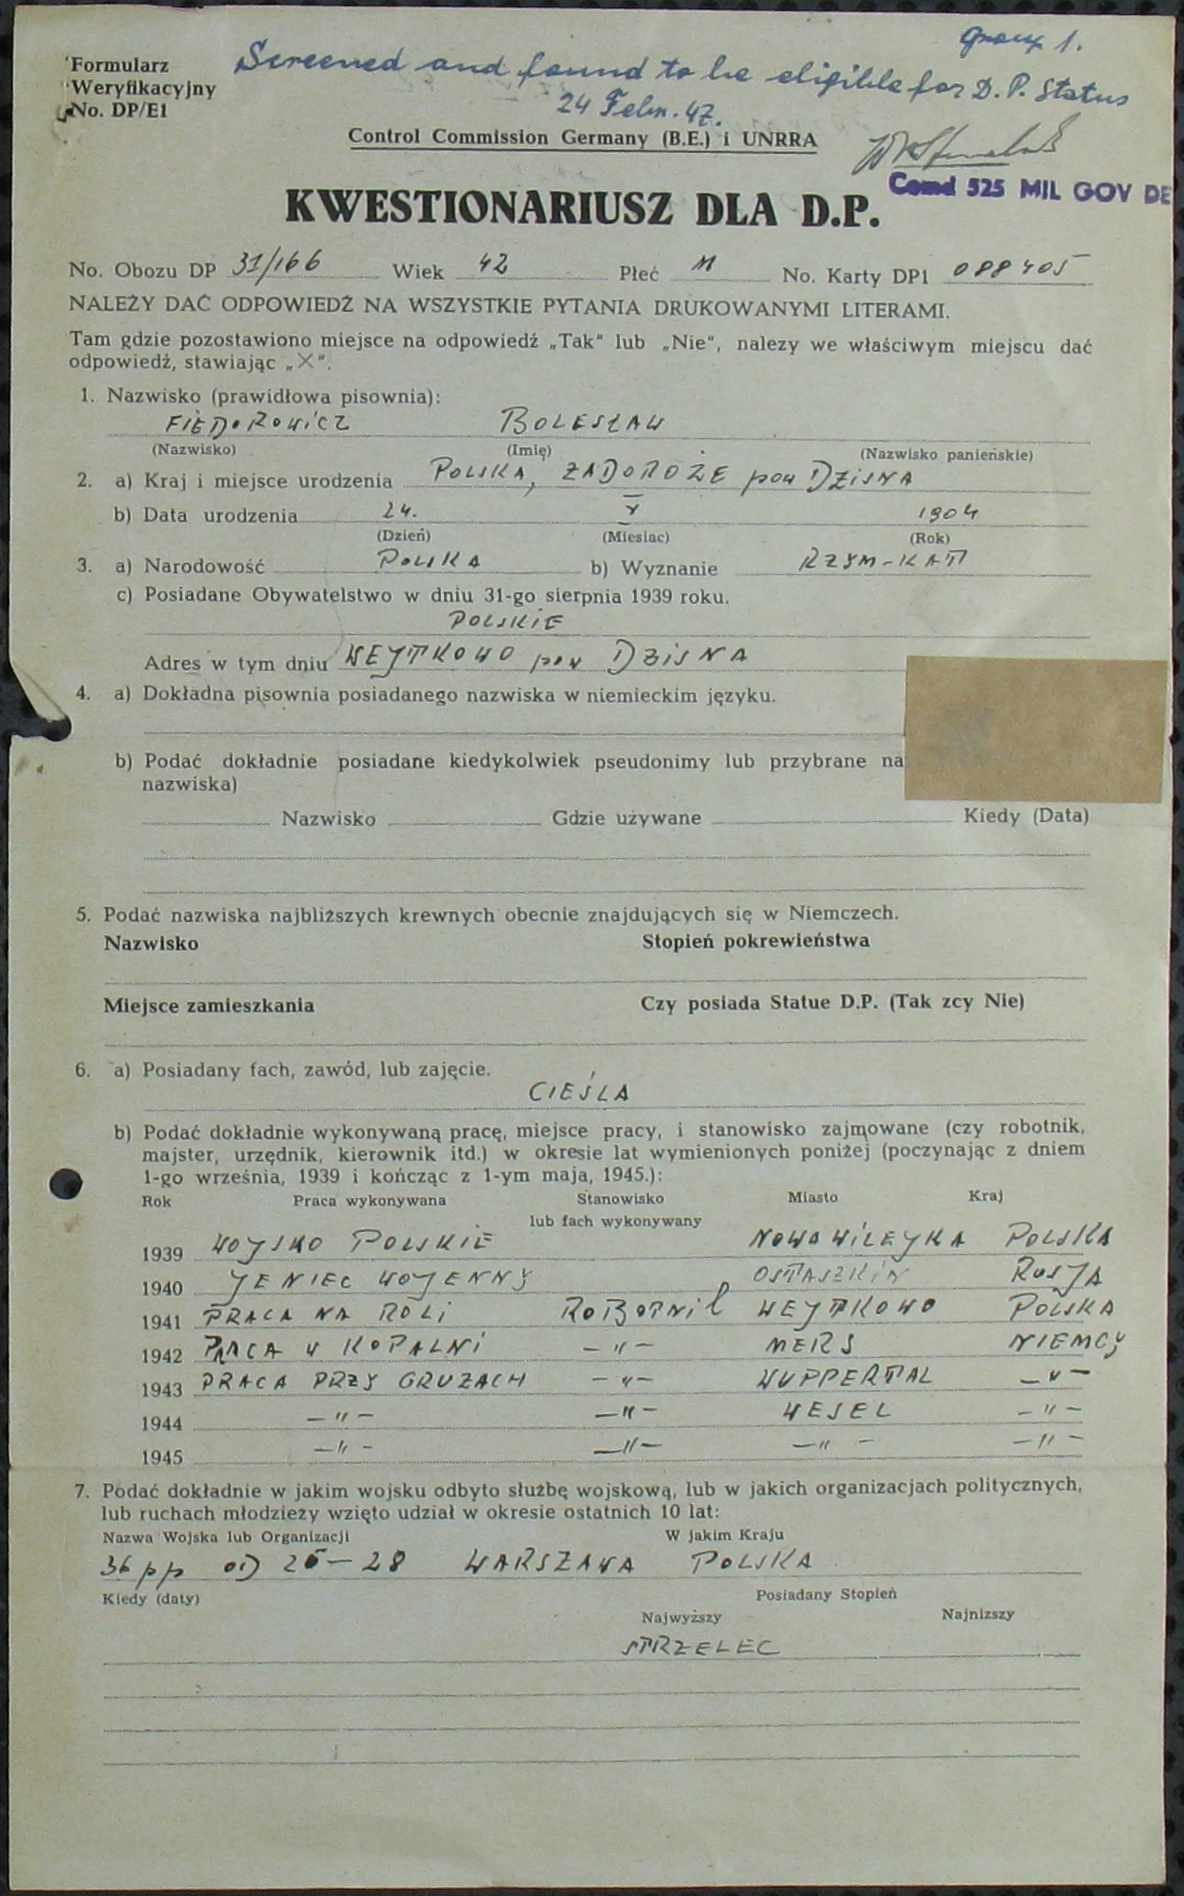 Group 1.
Formularz
Weryfikacyjny
No. DP/E1
Screened and found to be eligible for D.P. Status
24 Febr. 47.
Control Commission Germany (B.E.) i UNRRA
Comd 525 MIL GOV DE
KWESTIONARIUSZ DLA D.P.
No. Obozu DP 31/166 Wiek 42 Płeć M No. Karty DP1 088405
NALEŻY DAĆ ODPOWIEDŹ NA WSZYSTKIE PYTANIA DRUKOWANYMI LITERAMI.
Tam gdzie pozostawiono miejsce na odpowiedź „Tak" lub „Nie", nalezy we właściwym miejscu dać
odpowiedź, stawiając „X".
1. Nazwisko (prawidłowa pisownia):
FIEDOROWICZ BOLESŁAW
(Nazwisko) (Imię) (Nazwisko panieńskie)
2. a) Kraj i miejsce urodzenia POLSKA, ZADOROŻE pow DZISNA
b) Data urodzenia 24. V 1904
(Dzień) (Miesiac) (Rok)
3. a) Narodowość POLSKA b) Wyznanie RZYM-KAT
c) Posiadane Obywatelstwo w dniu 31-go sierpnia 1939 roku.
POLSKIE
Adres w tym dniu WEJTKOWO pow DZISNA
4. a) Dokładna pisownia posiadanego nazwiska w niemieckim języku.
b) Podać dokładnie posiadane kiedykolwiek pseudonimy lub przybrane na
nazwiska)
Nazwisko Gdzie używane Kiedy (Data)
5. Podać nazwiska najbliższych krewnych obecnie znajdujących się w Niemczech.
Nazwisko Stopień pokrewieństwa
Miejsce zamieszkania Czy posiada Statue D.P. (Tak zcy Nie)
6. a) Posiadany fach, zawód, lub zajęcie.
CIEŚLA
b) Podać dokładnie wykonywaną pracę, miejsce pracy, i stanowisko zajmowane (czy robotnik,
majster, urzędnik, kierownik itd.) w okresie lat wymienionych poniżej (poczynając z dniem
1-go września, 1939 i kończąc z 1-ym maja, 1945.):
Rok Praca wykonywana Stanowisko Miasto Kraj
lub fach wykonywany
1939 WOJSKO POLSKIE NOWOWILEJKA POLSKA
1940 JENIEC WOJENNY OSTASZKIN ROSJA
1941 PRACA NA ROLI ROBOTNIK WEJTKOWO POLSKA
1942 PRACA W KOPALNI -"- MERS NIEMCY
1943 PRACA PRZY GRUZACH -"- WUPPERTAL -"-
1944 -"- -"- WESEL -"-
1945 -"- -"- -"- -"-
7. Podać dokładnie w jakim wojsku odbyto służbę wojskową, lub w jakich organizacjach politycznych,
lub ruchach młodzieży wzięto udział w okresie ostatnich 10 lat:
Nazwa Wojska lub Organizacji W jakim Kraju
36 pp OD 26-28 WARSZAWA POLSKA
Kiedy (daty) Posiadany Stopień
Najwyższy Najnizszy
STRZELEC